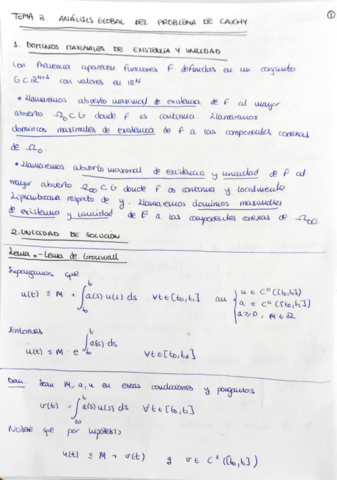 TEMA 3 ANÁLISIS GLOBAL DEL PROBLEMA DE CAUCHY
①
1. DOMINIOS MAXIMALES DE EXISTENCIA Y UNICIDAD
Con frecuencia aparecerán funciones F definidas en un conjunto
G⊂ℝ^{N+1} con valores en ℝ^N
• Llamaremos abierto maximal de existencia de F al mayor
abierto Ω₀⊂G donde F es continua. Llamaremos
dominios maximales de existencia de F a las componentes conexas
de Ω₀.
• Llamaremos abierto maximal de existencia y unicidad de F al
mayor abierto Ω₀₀⊂G donde F es continua y localmente
Lipschitziana respecto de y. Llamaremos dominios maximales
de existencia y unicidad de F a las componentes conexas de Ω₀₀.
2. UNICIDAD DE SOLUCIÓN
Lema.- Lema de Gronwall
Supongamos que
u(t) ≤ M + ∫_{t₀}^{t} a(s) u(s) ds ∀t∈[t₀,t₁] con { u ∈ C⁰([t₀,t₁]) a ∈ C⁰([t₀,t₁]) a≥0, M∈ℝ
Entonces
u(t) ≤ M · e^{∫_{t₀}^{t} a(s) ds} ∀t∈[t₀,t₁]
Dem Sean M, a, u en estas condiciones y pongamos
v(t) = ∫_{t₀}^{t} a(s) u(s) ds ∀t∈[t₀,t₁]
Nótese que por hipótesis
u(t) ≤ M + v(t) y v∈ C¹([t₀,t₁])